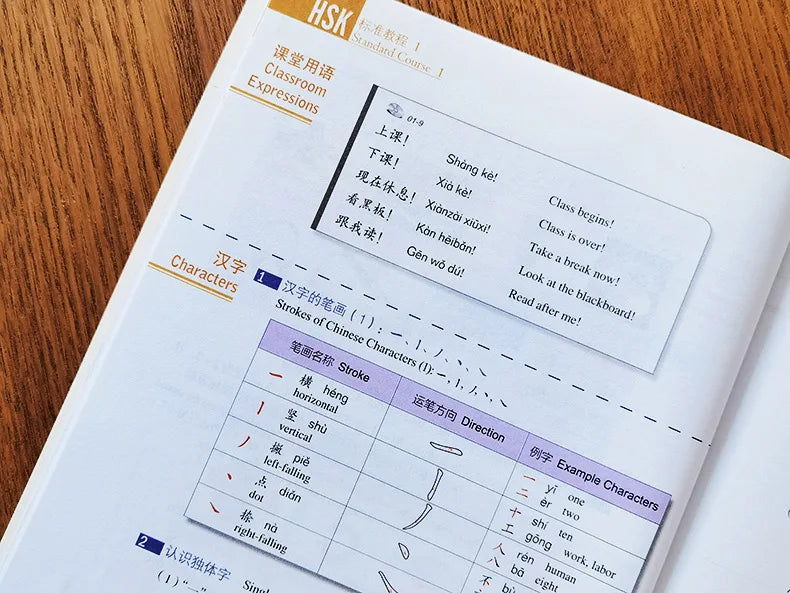 HSK 标准教程 1
Standard Course 1
课堂用语
Classroom
Expressions
01-9
上课! Shàng kè! Class begins!
下课! Xià kè! Class is over!
现在休息! Xiànzài xiūxi! Take a break now!
看黑板! Kàn hēibǎn! Look at the blackboard!
跟我读! Gēn wǒ dú! Read after me!
汉字
Characters
1 汉字的笔画(1):一、丨、丿、丶、㇏
Strokes of Chinese Characters (1): 一、丨、丿、丶、㇏
笔画名称 Stroke 运笔方向 Direction 例字 Example Characters
一 横 héng
horizontal
一 yī one
二 èr two
丨 竖 shù
vertical
十 shí ten
工 gōng work, labor
丿 撇 piě
left-falling
人 rén human
八 bā eight
丶 点 diǎn
dot
不 bù
㇏ 捺 nà
right-falling
2 认识独体字
(1)“一”